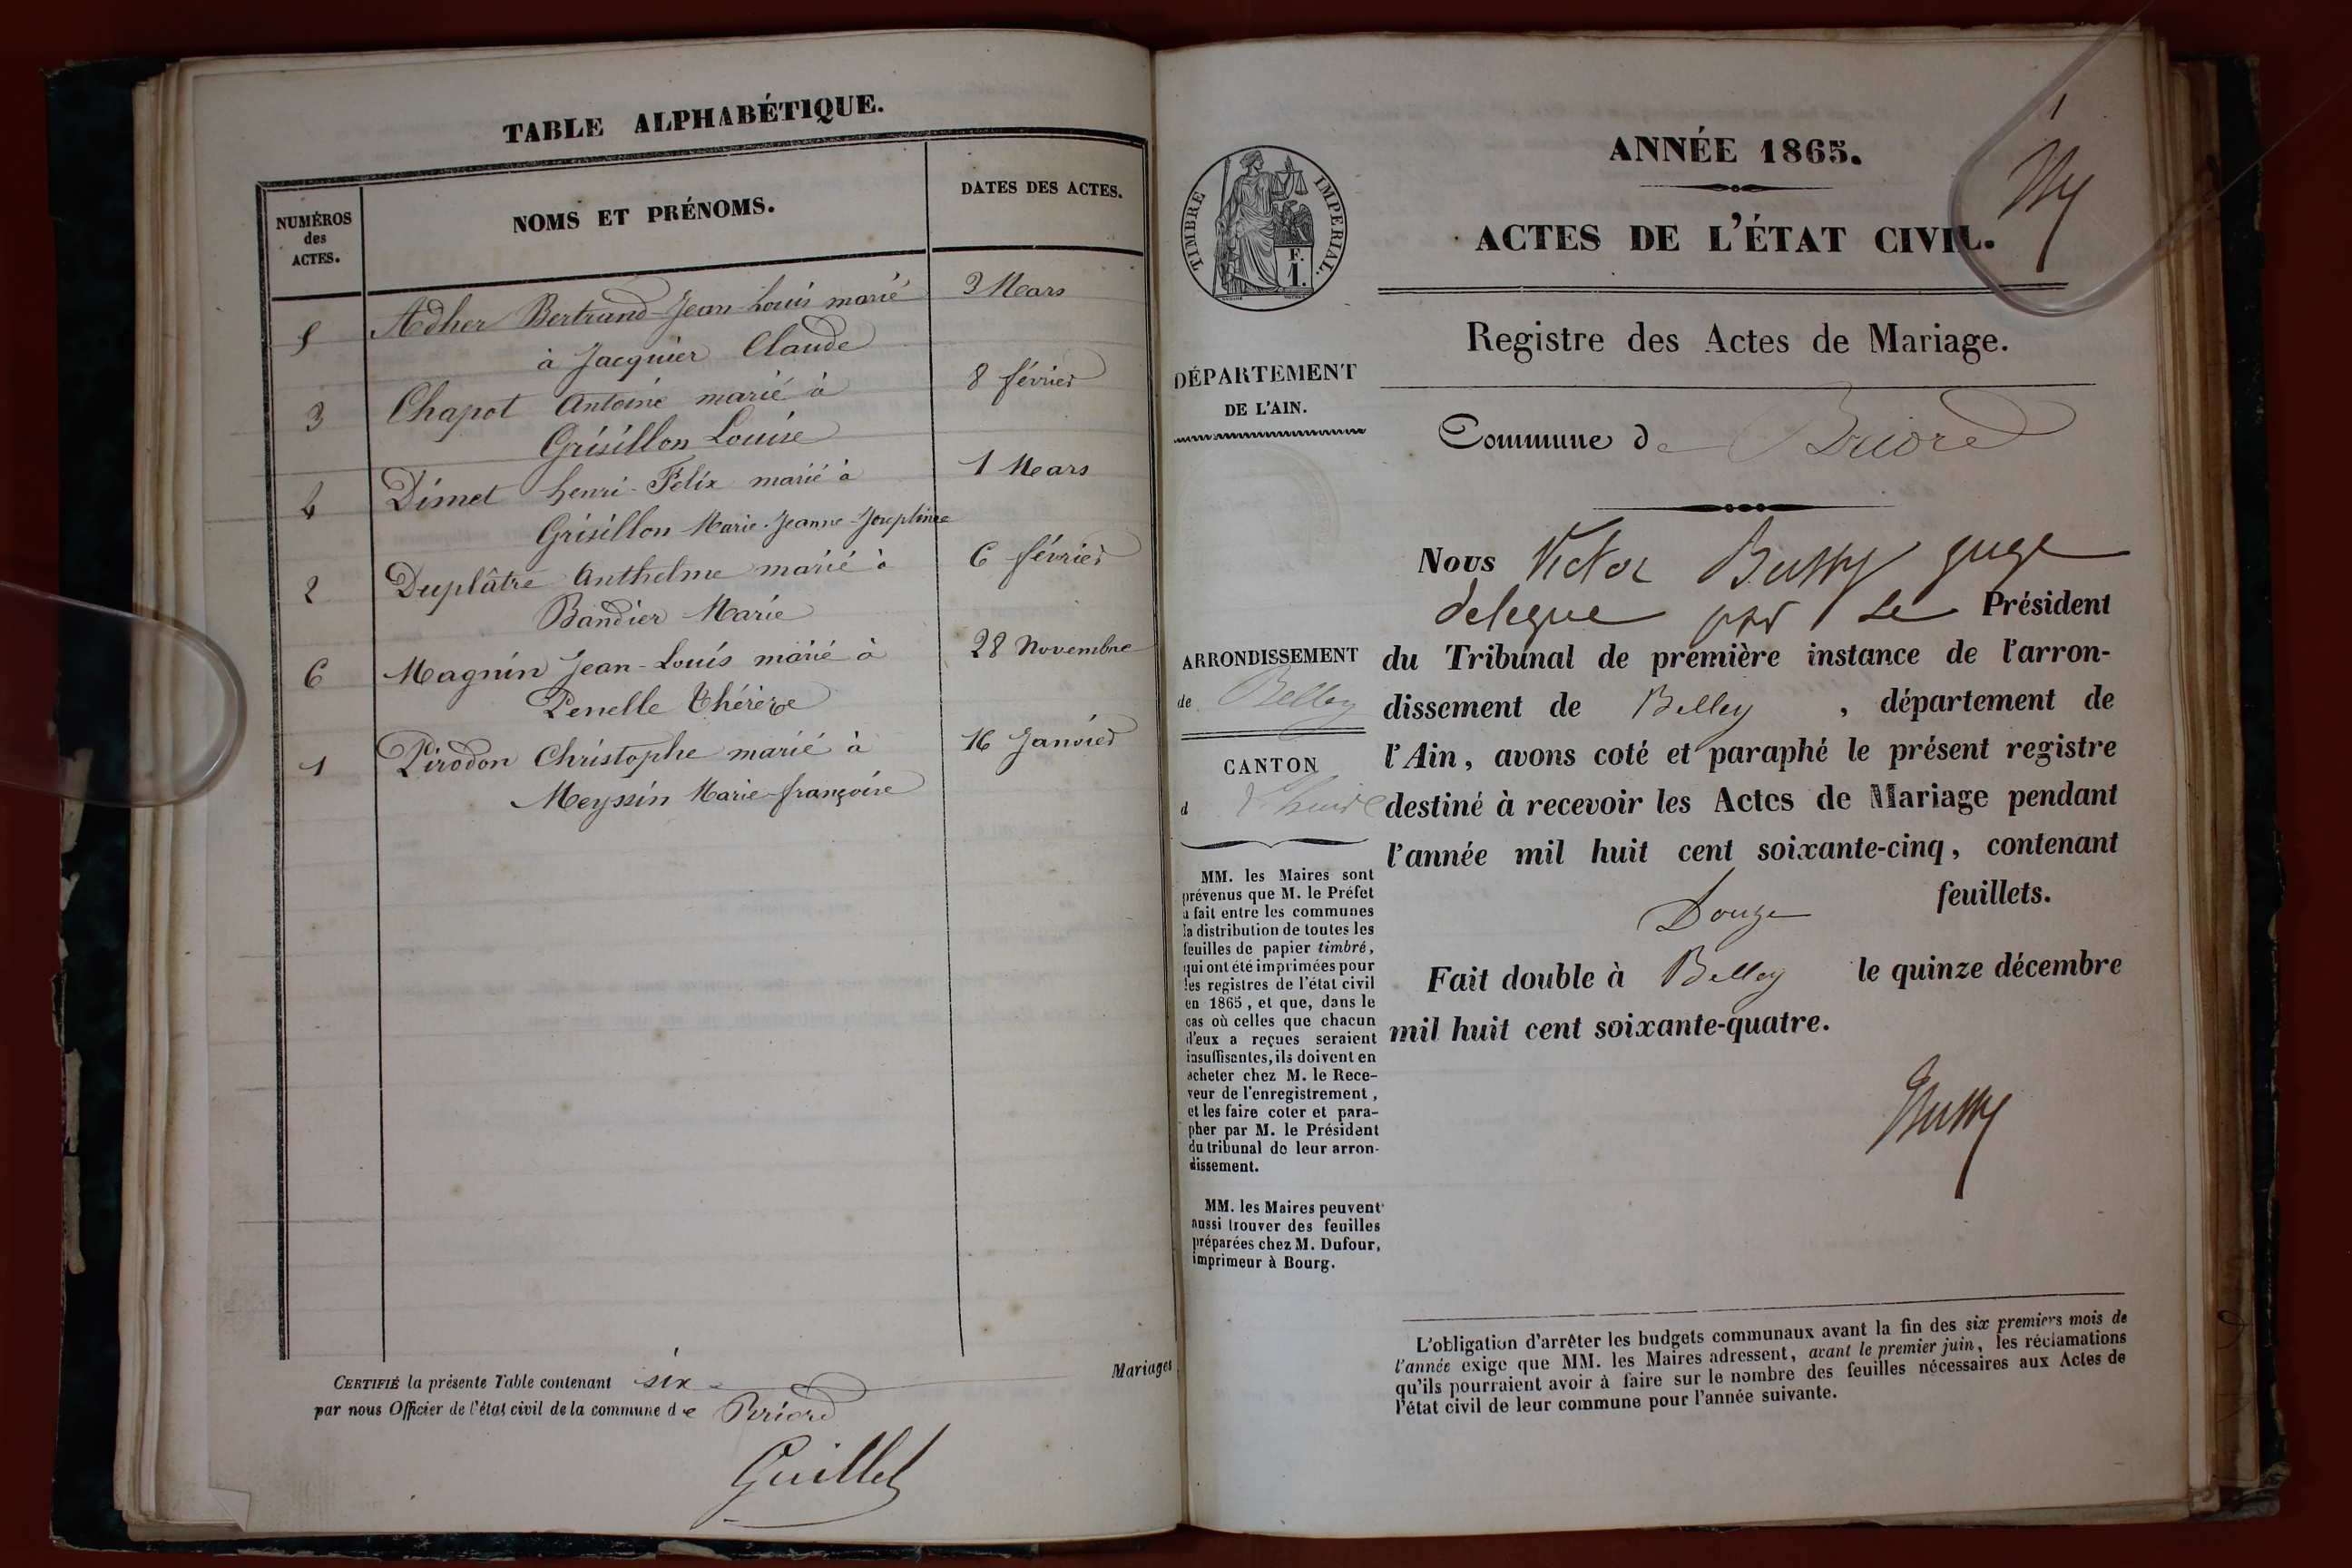 TABLE ALPHABÉTIQUE.
NUMÉROS
des
ACTES.
NOMS ET PRÉNOMS.
DATES DES ACTES.
5 Adher Bertrand-Jean-Louis marié 3 Mars
à Jacquier Claude
3 Chapot Antoine marié à 8 février
Grisillon Louise
4 Dimet henri-Félix marié à 1 Mars
Grisillon Marie-Jeanne-Josephine
2 Duplâtre Anthelme marié à 6 février
Bandier Marie
6 Magnin Jean-Louis marié à 28 Novembre
Penelle Thérèse
1 Pirodon Christophe marié à 16 Janvier
Meyssin Marie-françoise
CERTIFIÉ la présente Table contenant six Mariages
par nous Officier de l'état civil de la commune de Briord
Guillet
TIMBRE IMPERIAL.
F.
1.
DÉPARTEMENT
DE L'AIN.
ARRONDISSEMENT
de Belley
CANTON
d
MM. les Maires sont
prévenus que M. le Préfet
a fait entre les communes
la distribution de toutes les
feuilles de papier timbré,
qui ont été imprimées pour
les registres de l'état civil
en 1865, et que, dans le
cas où celles que chacun
d'eux a reçues seraient
insuffisantes, ils doivent en
acheter chez M. le Rece-
veur de l'enregistrement,
et les faire coter et para-
pher par M. le Président
du tribunal de leur arron-
dissement.
MM. les Maires peuvent
aussi trouver des feuilles
préparées chez M. Dufour,
imprimeur à Bourg.
1
ANNÉE 1865.
ACTES DE L'ÉTAT CIVIL.
Registre des Actes de Mariage.
Commune de Briord
Nous Victor Bussy juge
delegue par le Président
du Tribunal de première instance de l'arron-
dissement de Belley, département de
l'Ain, avons coté et paraphé le présent registre
destiné à recevoir les Actes de Mariage pendant
l'année mil huit cent soixante-cinq, contenant
Douze feuillets.
Fait double à Belley le quinze décembre
mil huit cent soixante-quatre.
Bussy
L'obligation d'arrêter les budgets communaux avant la fin des six premiers mois de
l'année exige que MM. les Maires adressent, avant le premier juin, les réclamations
qu'ils pourraient avoir à faire sur le nombre des feuilles nécessaires aux Actes de
l'état civil de leur commune pour l'année suivante.